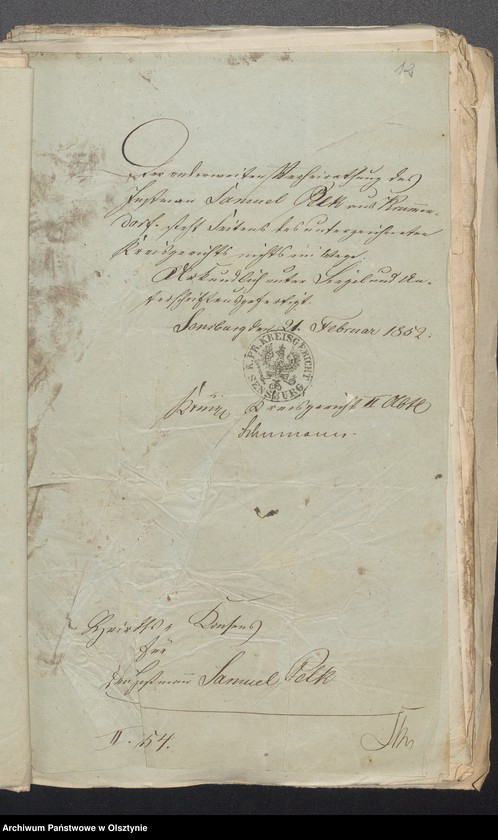 12
Der anderweiten Verheirathung des
Instmann Samuel Pelk aus
dorf steht Seitens des unterzeichneten
Kreisgerichts nichts im Wege.
Urkundlich unter Siegel und Un-
terschrift ausgefertigt.
Sensburg den 21. Februar 1852.
K. PR. KREISGERICHT
SENSBURG
Königl Kreisgericht II Abth
Konsens
für
den Instmann Samuel Pelk
II. 54.
Archiwum Państwowe w Olsztynie